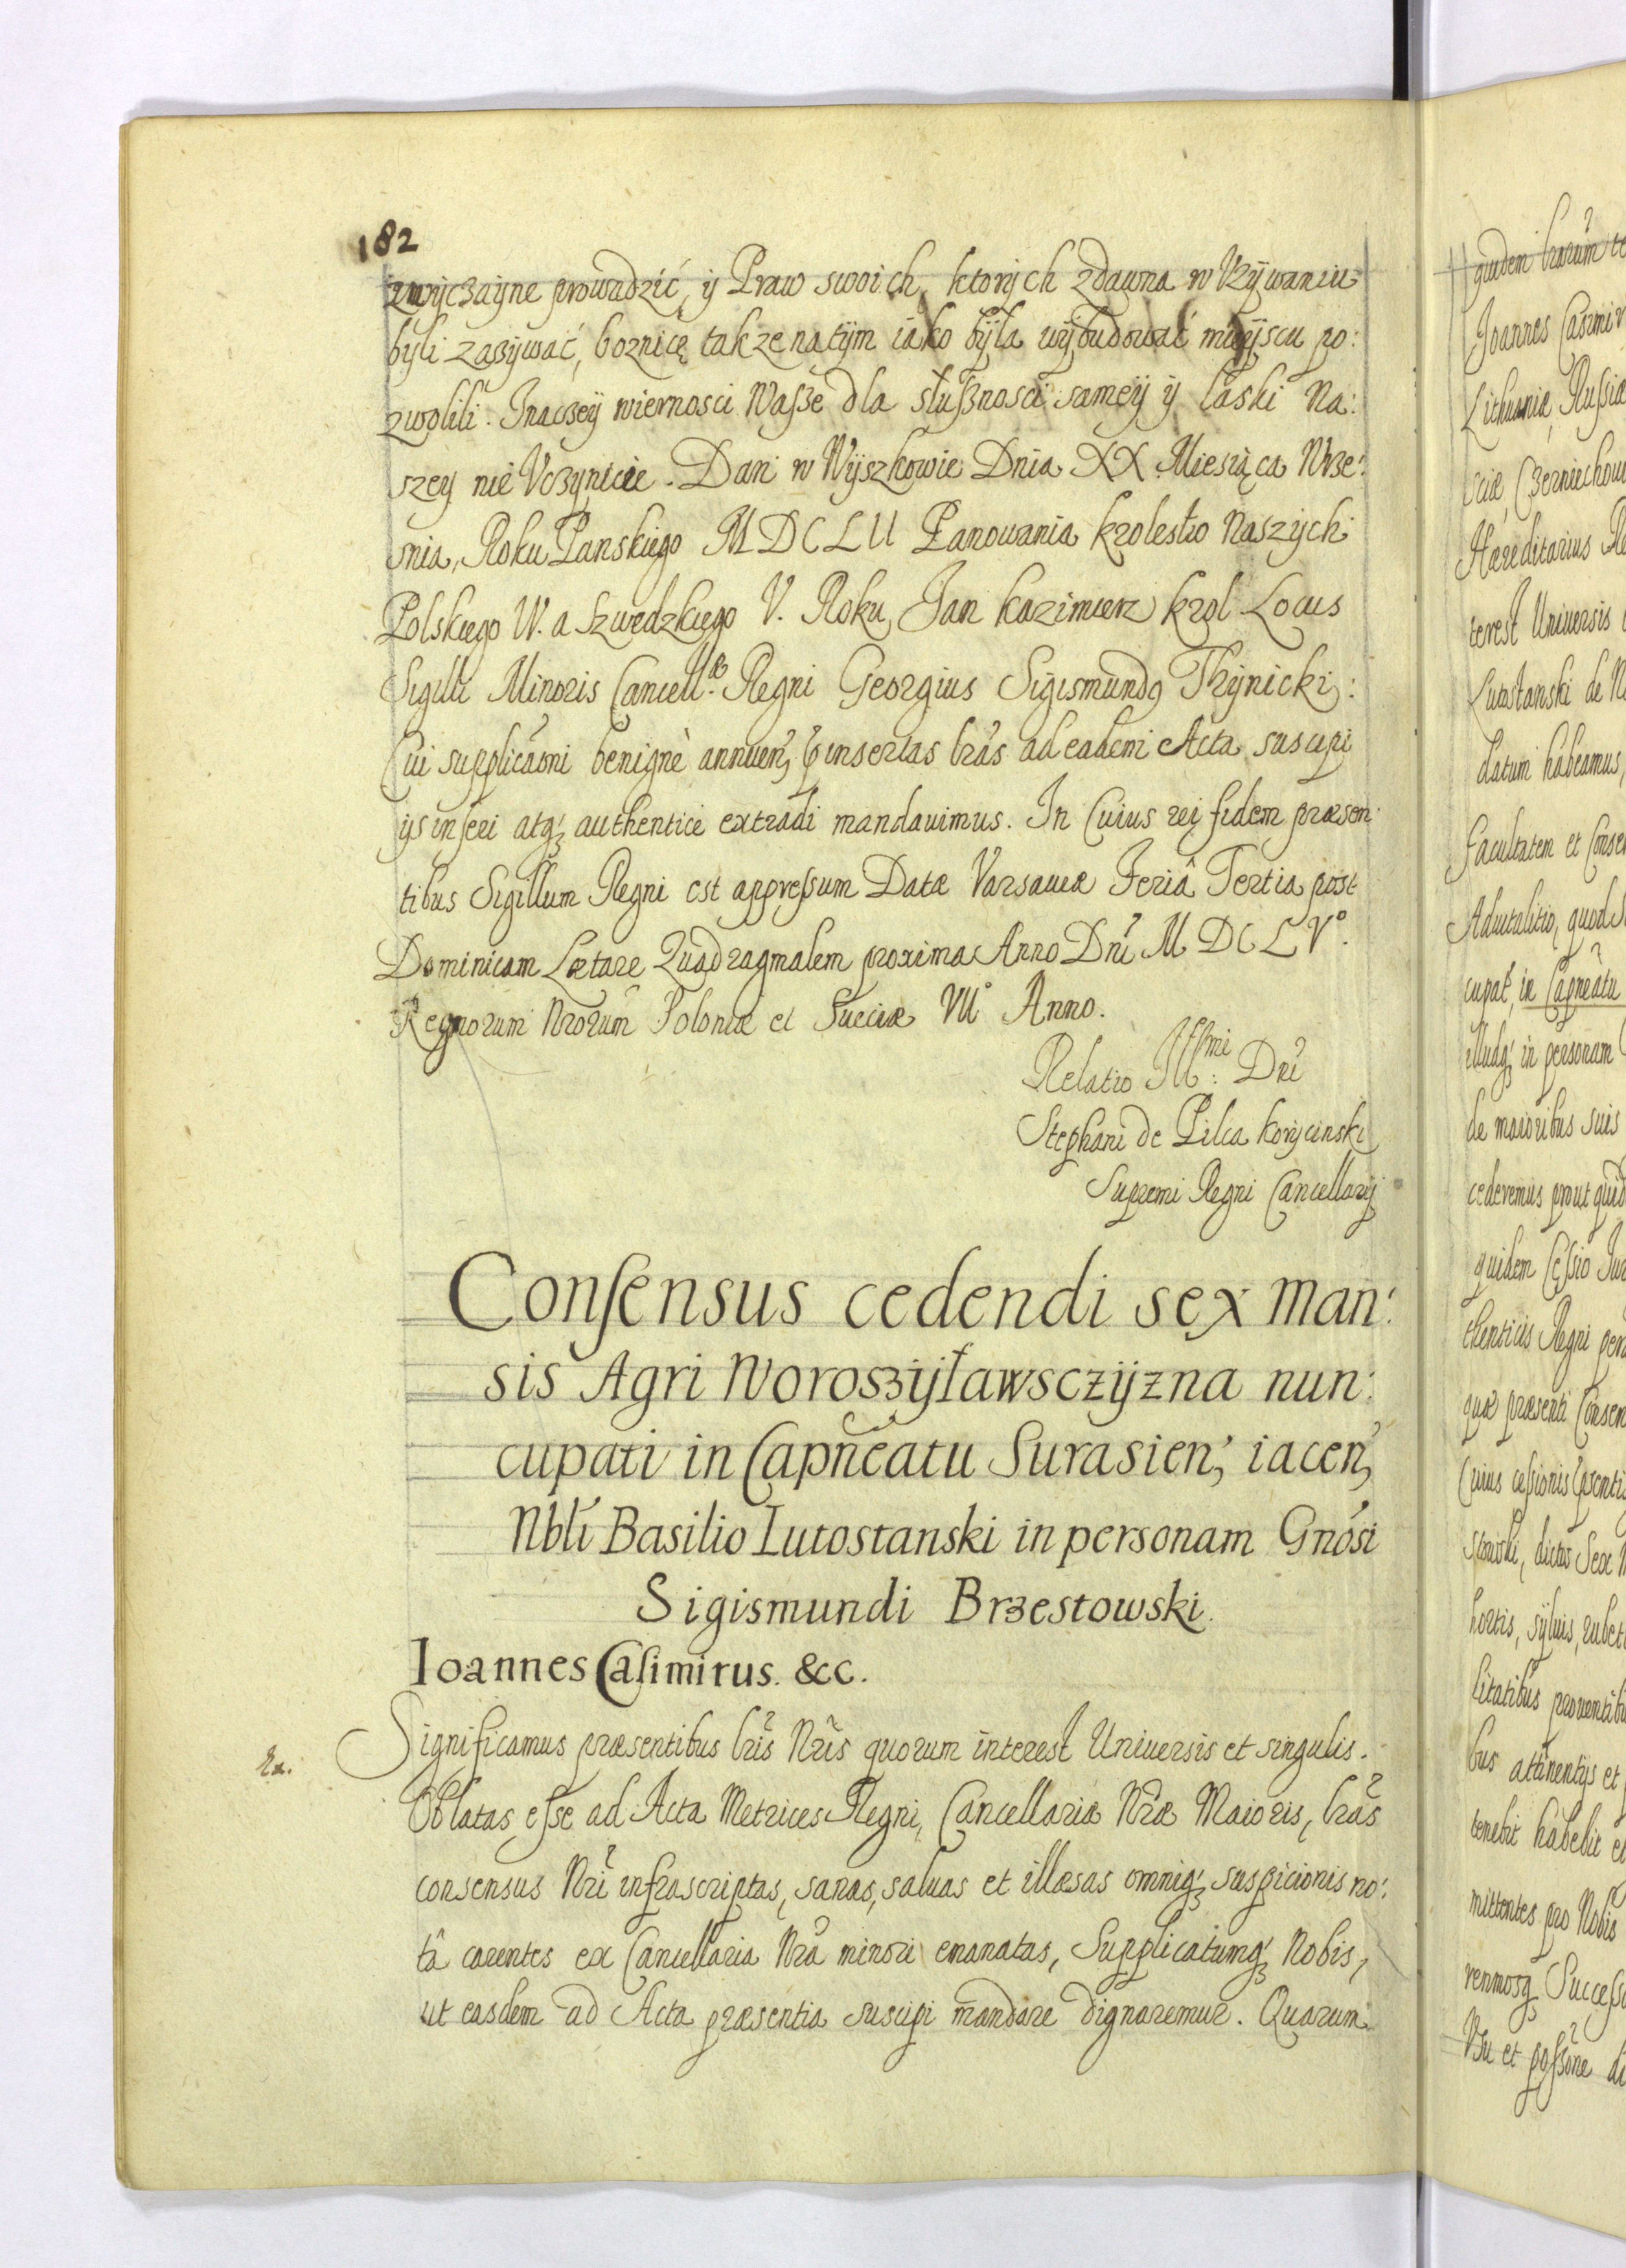 182
zwyczayne prowadzić, ÿ Praw swoich, ktorych zdawna w Vzÿwaniu
byli zazÿwać, boznicę takze natÿm iako była wÿbudować mieÿscu po:
zwolili. Inaczeÿ wiernosci Wasze dla słusznosci sameÿ ÿ łaski Na:
szey nie Vczynicie. Dan w Wÿszkowie Dnia XX. Miesiąca Wrze:
snia, Roku Panskiego MDCLII Panowania krolestw Naszych
Polskiego IV. a Szwedzkiego V. Roku Jan kazimierz krol Locus
Sigilli Minoris Cancell:æ Regni Georgius Sigismundq
Cui supplicaõni benignè annuen, pinsertas lrãs ad eadem Acta suscipi
ijs inseri atq; authentice extradi mandauimus. In Cuius rei fidem præsen:
tibus Sigillum Regni est appressum Datæ Varsauiæ Feriâ Tertia post
Dominicam Lætare Quadragmalem proxima Anno Dnĩ M DC LV°.
Regnorum Nrorũm Poloniæ et Sueciæ VII° Anno.
Relatio Ill:mi Dnĩ
Stephani de Pilca korycinski
Supremi Regni Cancellarij
Consensus cedendi sex Man:
sis Agri Woroszÿławsczÿzna nun:
cupati in Capnẽatu Surasien, iacen,
Nbli Basilio Lutostanski in personam Gnõsi
Sigismundi Brzestowski.
Ioannes Casimirus. &cc.
Significamus præsentibus lrĩs Nrĩs quorum interest Uniuersis et singulis.
Rx.
Oblatas esse ad Acta Metrices Regni, Cancellariæ Nræ Maioris, lrãs
consensus Nrĩ infrascriptas, sanas, saluas et illæsas omniq; suspicionis no:
tâ carentes ex Cancellaria Nrã minori emanatas, Supplicatumq; Nobis,
ut easdem ad Acta præsentia suscipi mandare dignaremur. Quarum
quidem lrarũm
Joannes Casimir
Lithuaniæ, Russiæ
Czerniechow
Hæreditarius
terest Uniuersis
Lutostanski de
datum habeamus,
facultatem et Conse
Aduitalitio, quod
cupat, in Capneãtu
illudq; in personam
de maioribus suis
cederemus prout quid
quidem Cessio Jur
thenticis Regni per
quæ præsenti Consen
Cuius cessionis
stowski, dictos Sex
hortis, sÿluis, rubet
litatibus prouentibu
bus attinentijs et
tenebit habebit
mittentes pro Nobis
renmosq Success
Vsu et possõne